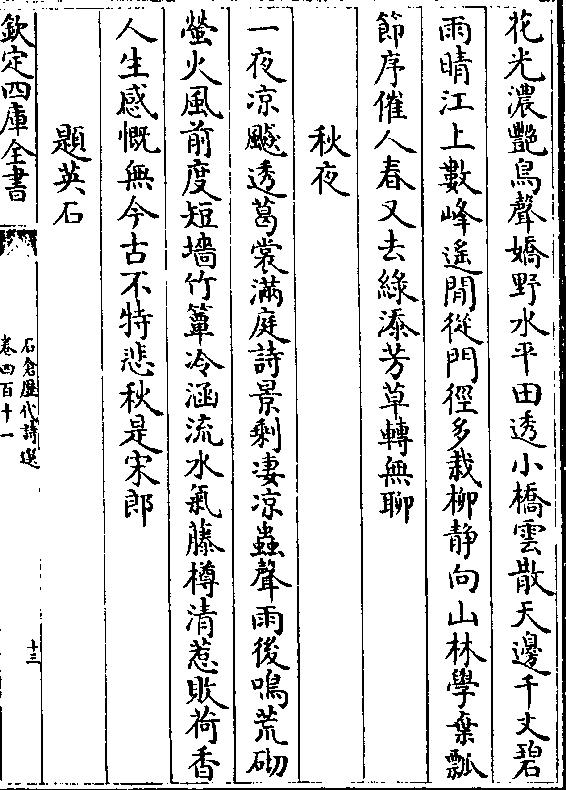 花光濃艷鳥聲嬌野水平田透小橋雲散天邊千丈碧
雨晴江上數峰遙閒從門徑多栽柳静向山林學棄瓢
節序催人春又去綠添芳草轉無聊
秋夜
一夜凉颸透葛裳滿庭詩景剩淒凉蟲聲雨後鳴荒砌
螢火風前度短墻竹簟冷涵流水氣藤樽清惹敗荷香
人生感慨無今古不特悲秋是宋郎
題英石
欽定四庫全書
石倉歷代詩選
卷四百十一
十三